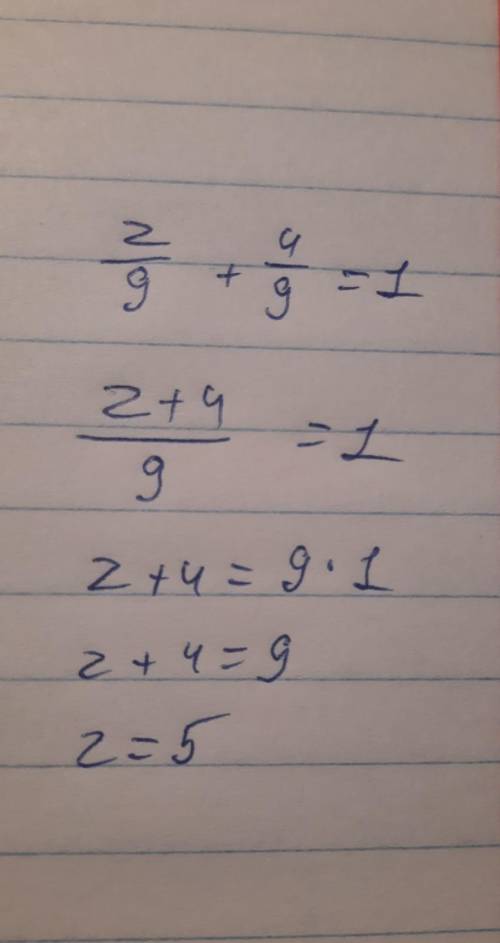 z/9 + 4/9 = 1
(z+4)/9 = 1
z+4 = 9·1
z+4=9
z=5